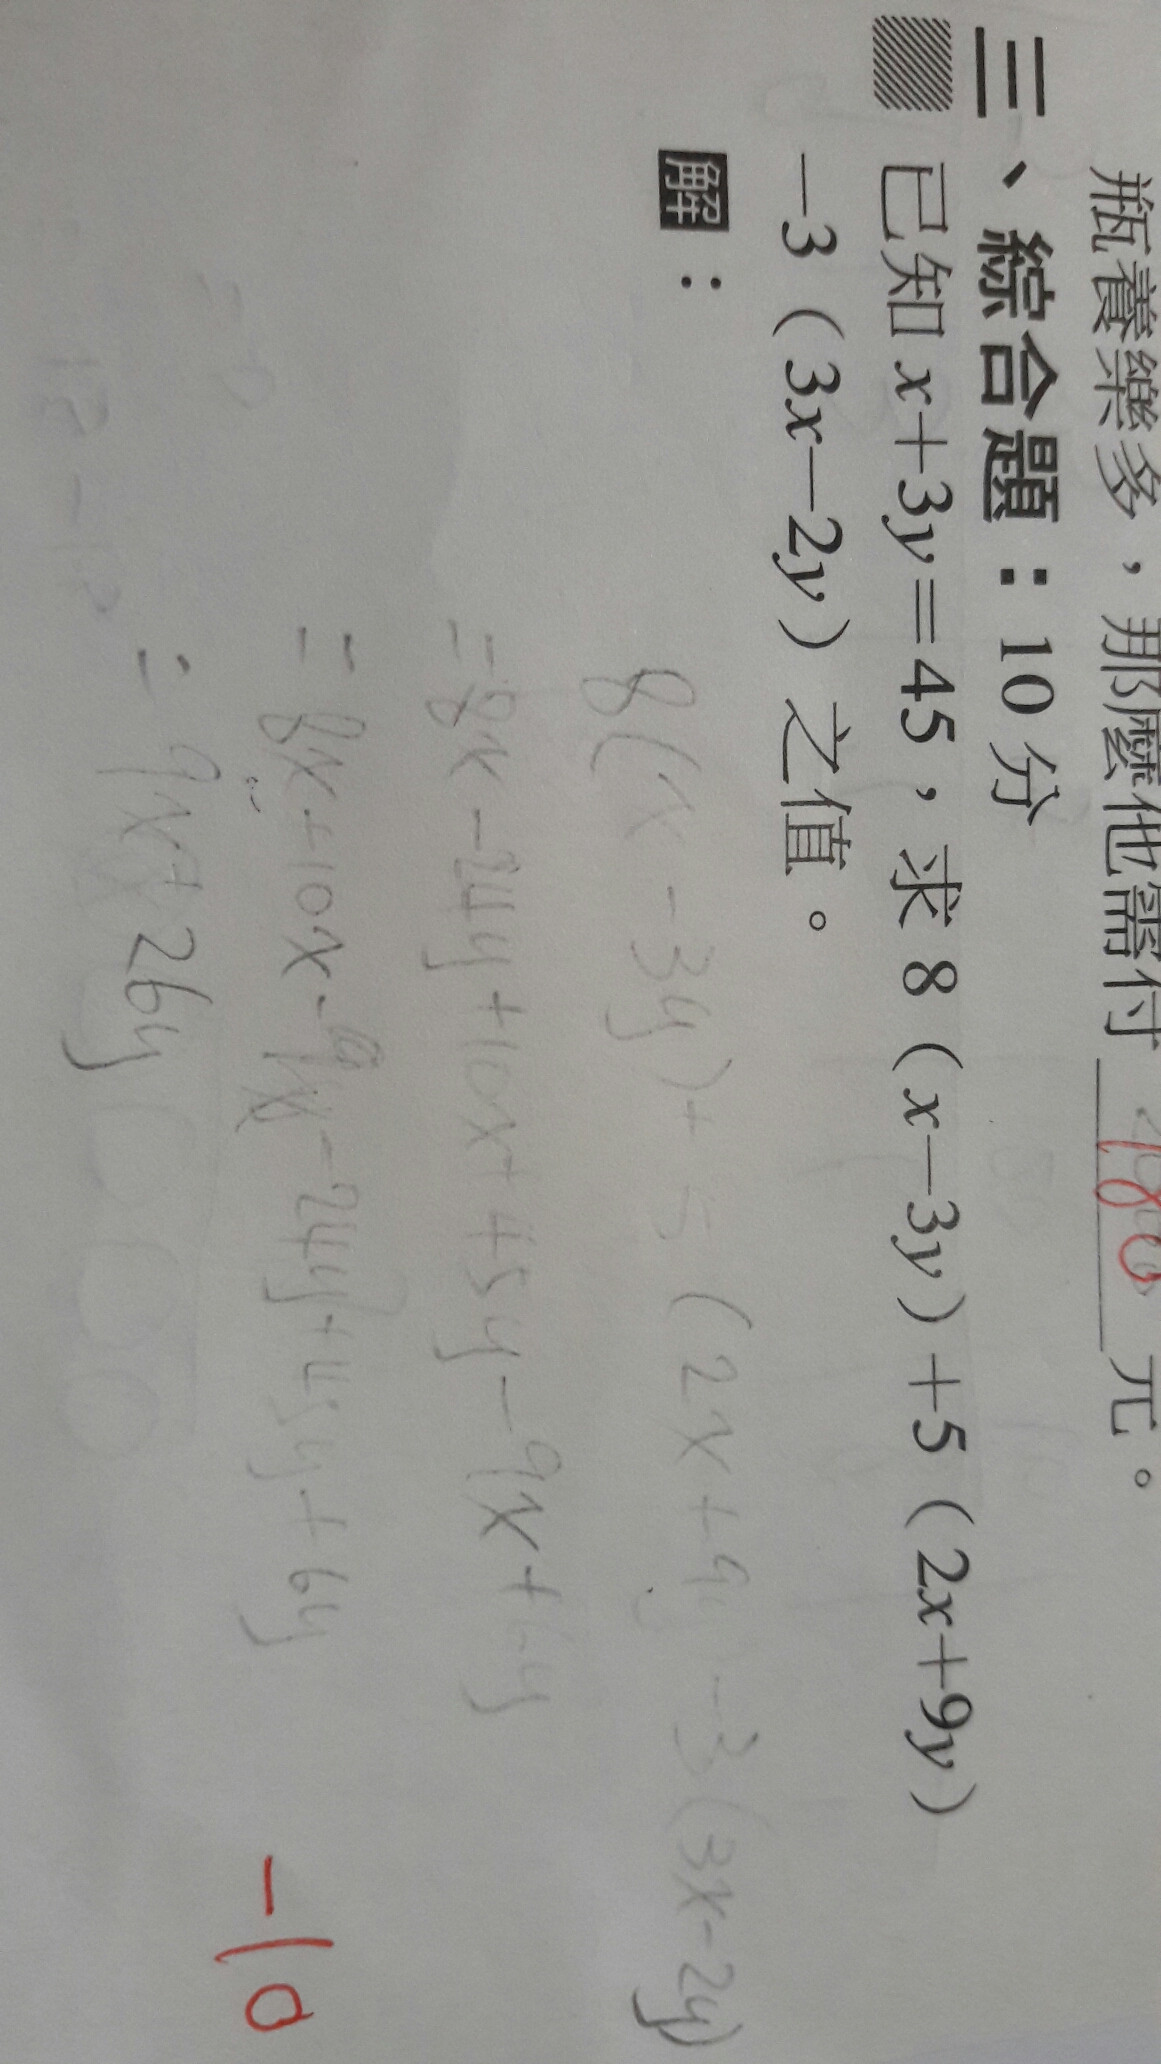 瓶養樂多，那麼他需付 480 元。
三、綜合題：10分
已知 x+3y=45，求 8（x—3y）+5（2x+9y）
—3（3x—2y）之值。
解：
8(x-3y)+5(2x+9y -3(3x-2y)
=8x-24y+10x+45y-9x+6y
=8x+10x-9x-24y+45y+6y
=9x+26y
-10